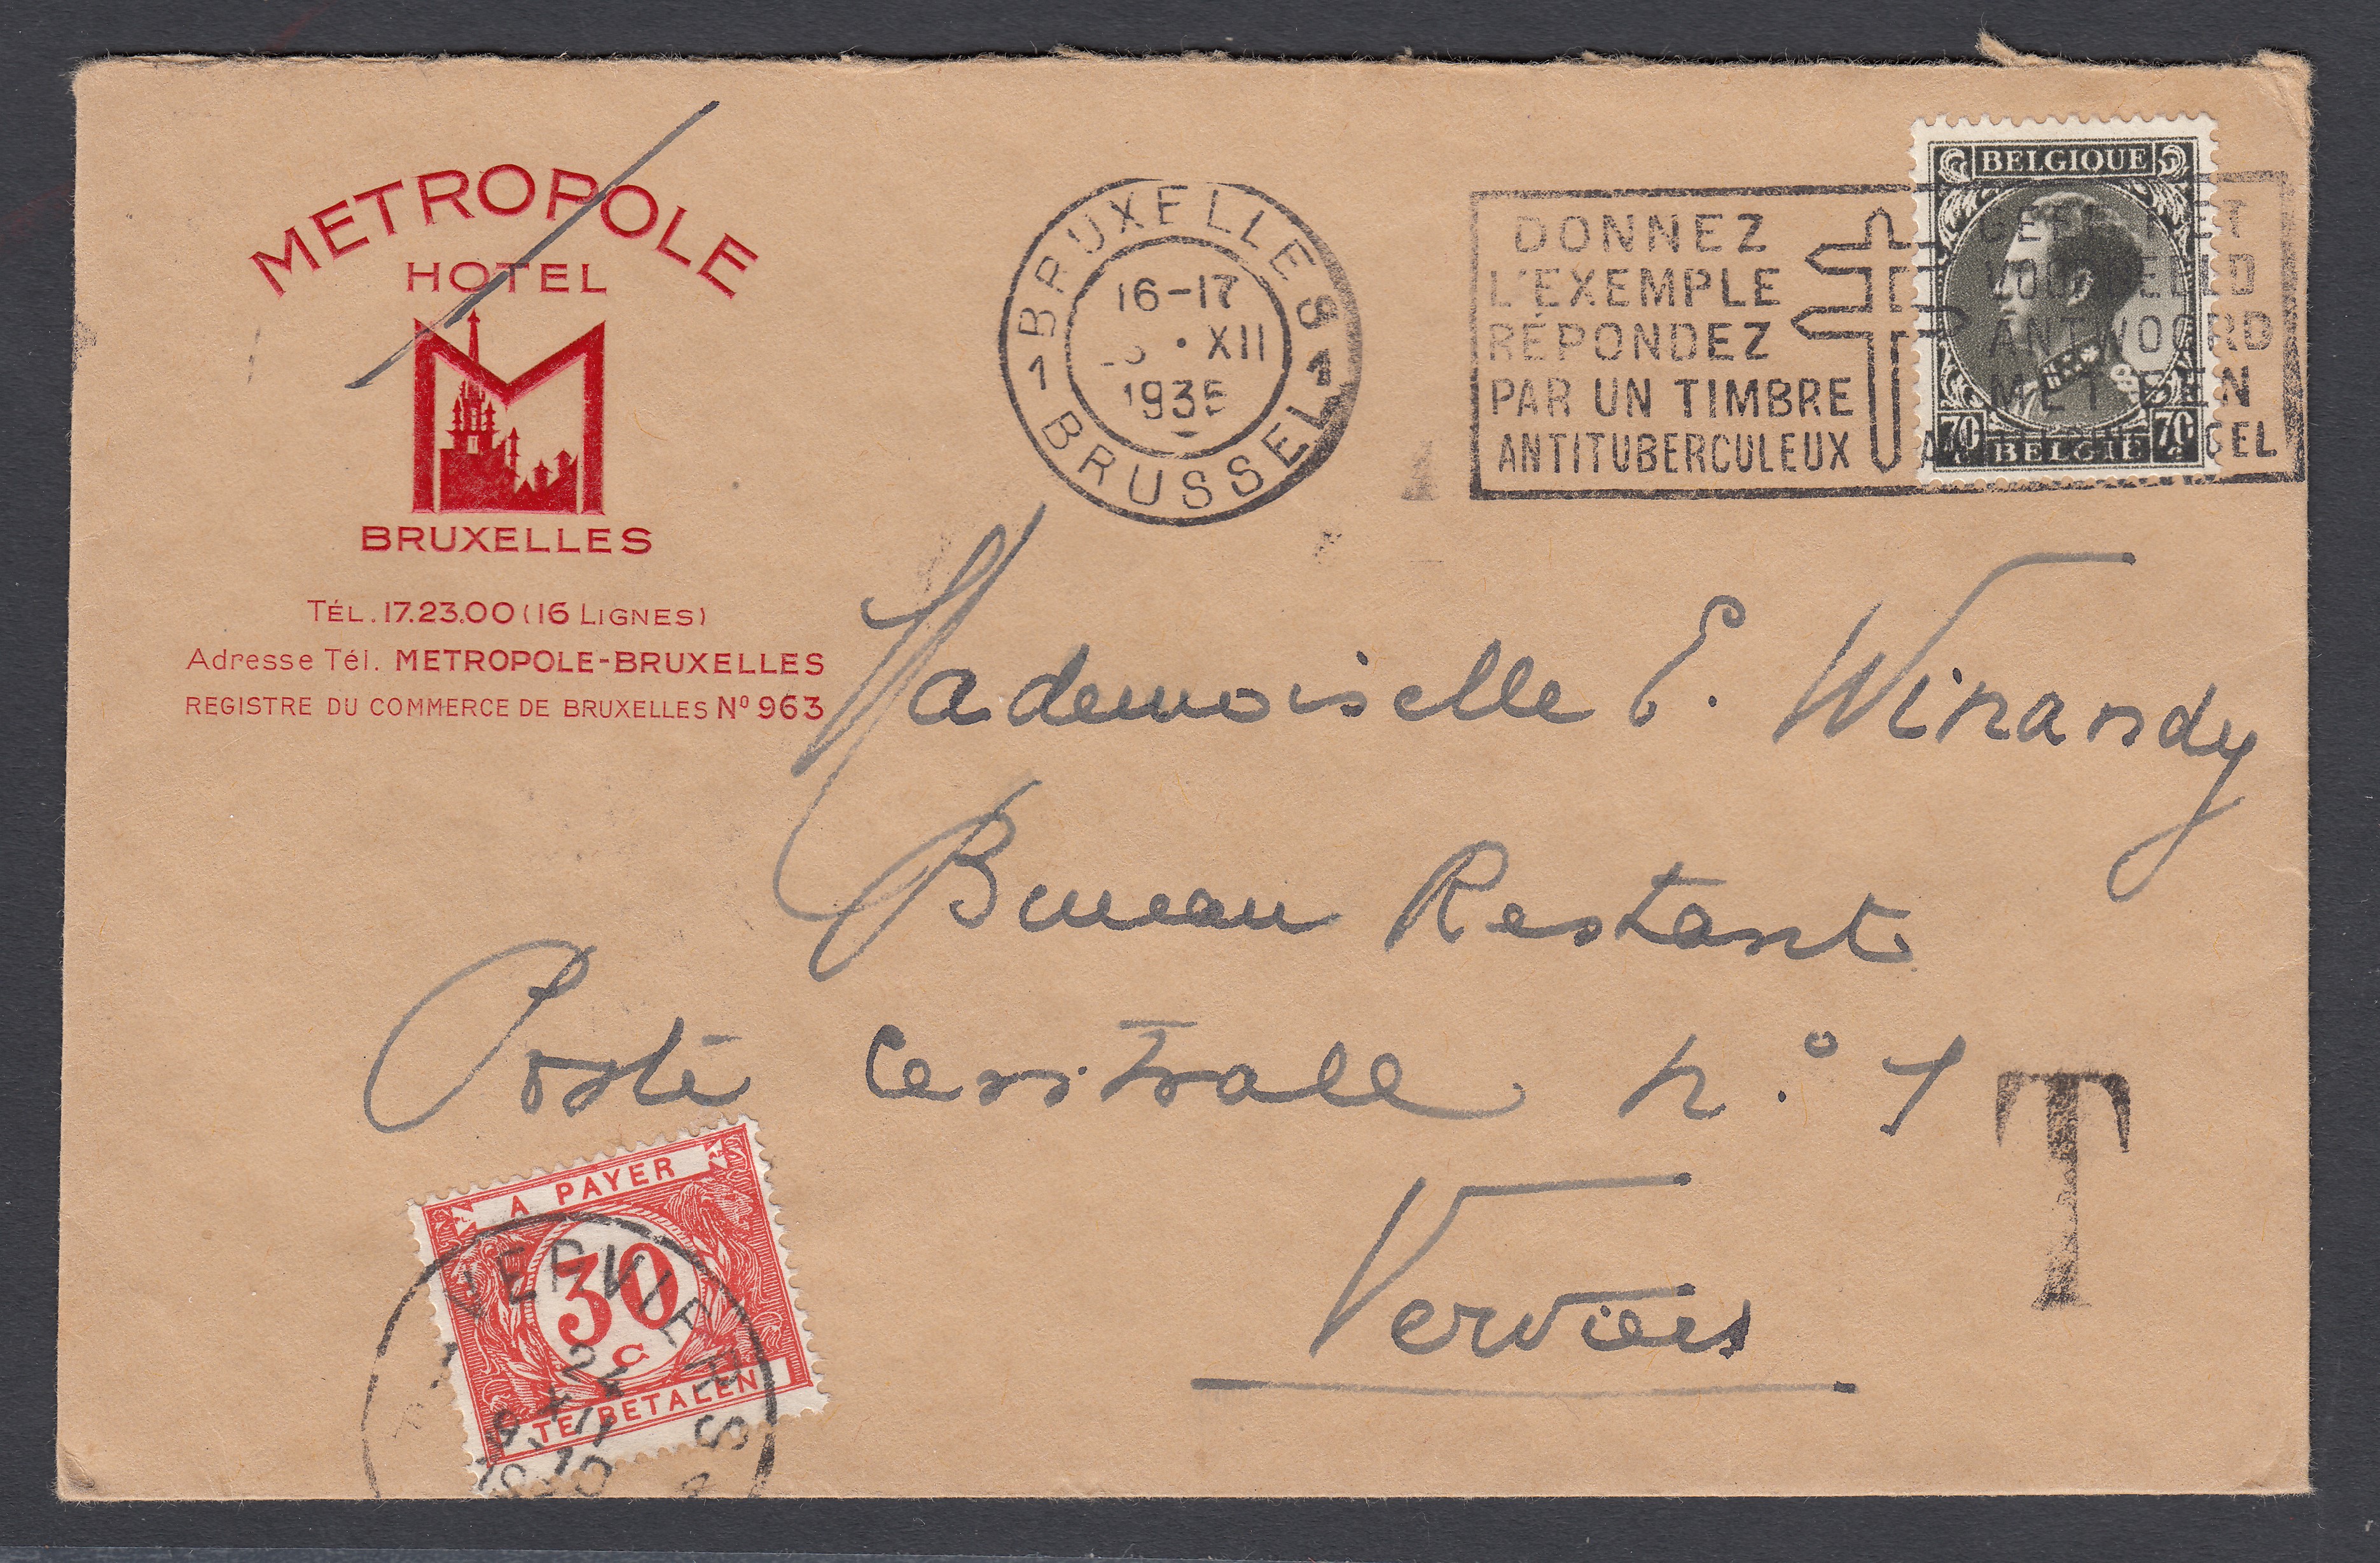 METROPOLE
HOTEL
BRUXELLES
TÉL. 17.23.00 (16 LIGNES)
Adresse Tél. METROPOLE-BRUXELLES
REGISTRE DU COMMERCE DE BRUXELLES Nº 963
BRUXELLES
1 1
16-17
XII
1935
BRUSSEL
DONNEZ
L'EXEMPLE
RÉPONDEZ
PAR UN TIMBRE
ANTITUBERCULEUX
GEEF HET
VOORBEELD
ANTWOORD
MET EEN
BELGIQUE
70 BELGIË 70
Mademoiselle E. Winandy
Bureau Restant
Poste Centrale n.º 1
Verviers
T
A PAYER
30
C
TE BETALEN
VERVIERS